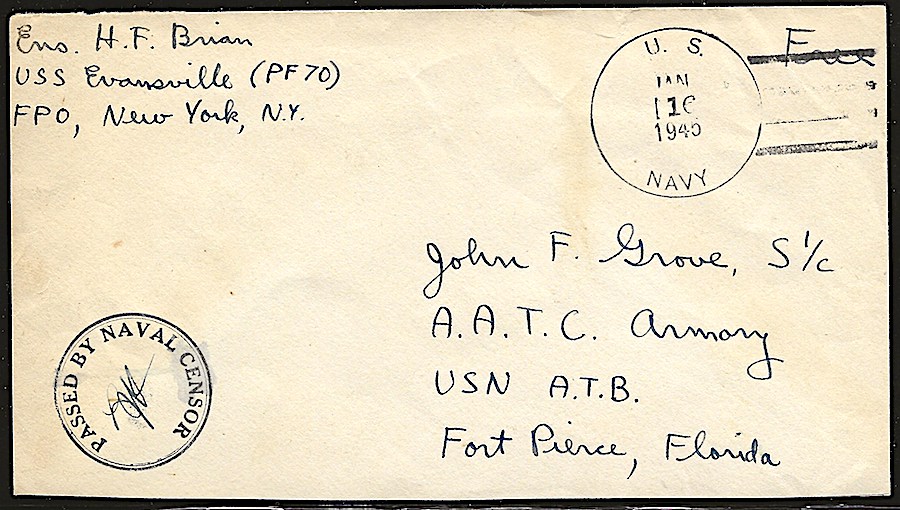 Ens. H.F. Brian
USS Evansville (PF70)
FPO, New York, N.Y.
U. S.
JAN
16
1945
NAVY
Free
John F. Grove, S 1/c
A.A.T.C. Armory
USN A.T.B.
Fort Pierce, Florida
PASSED BY NAVAL CENSOR